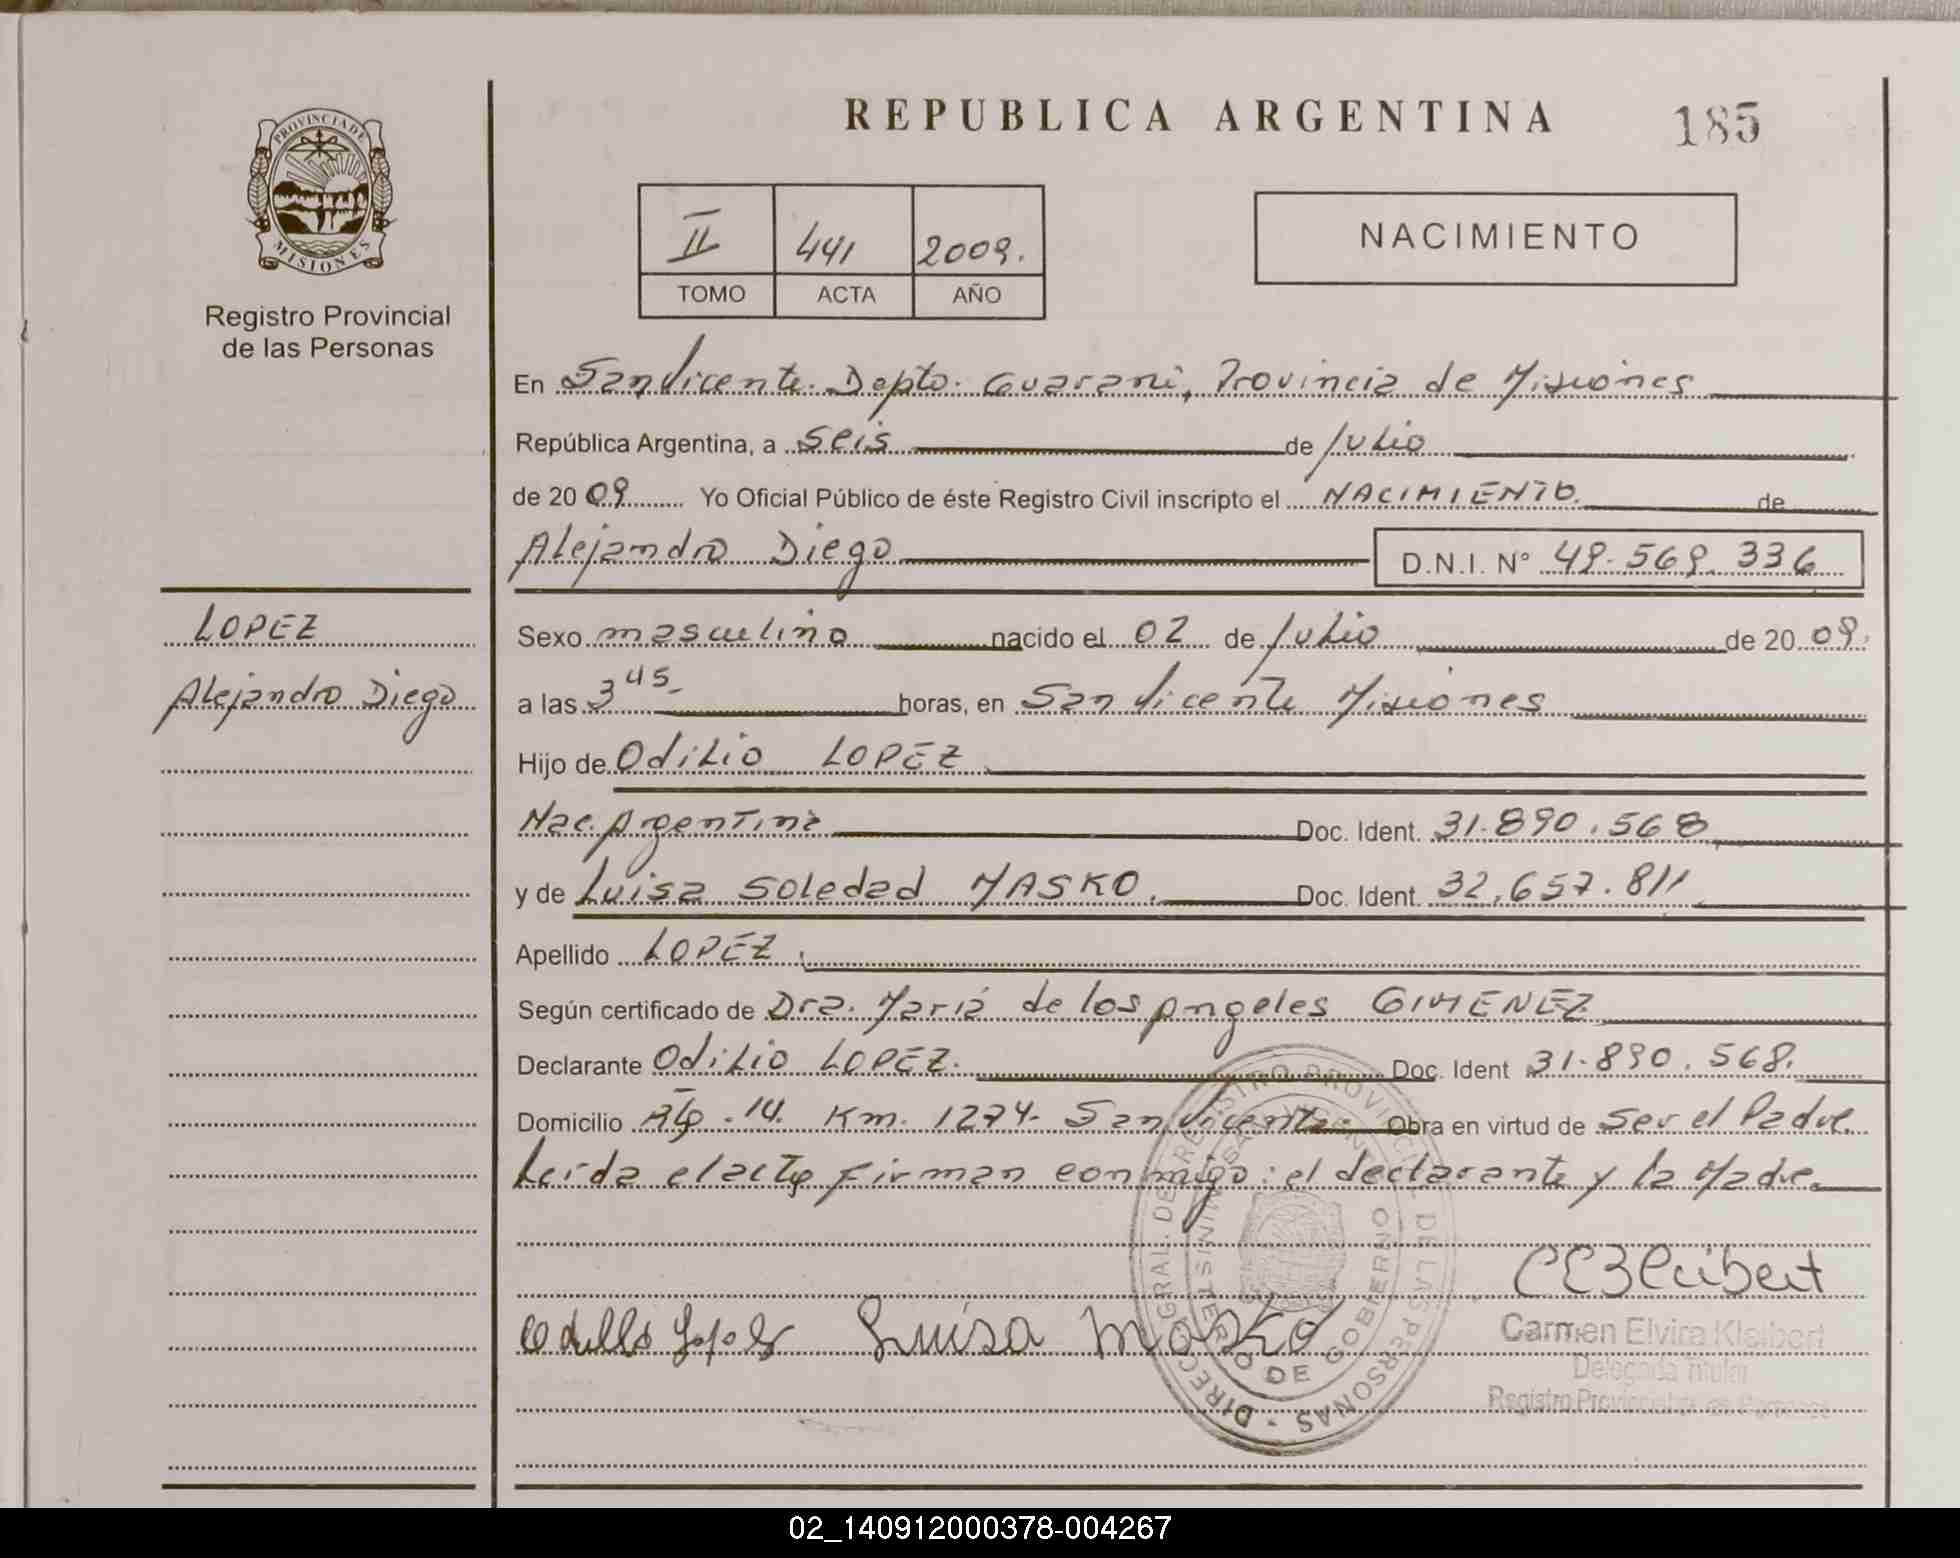 PROVINCIA DE
MISIONES
Registro Provincial
de las Personas
LOPEZ
Alejandro Diego
REPUBLICA ARGENTINA
185
II 441 2009.
TOMO ACTA AÑO
NACIMIENTO
En San Vicente. Depto. Guarani, Provincia de Misiones
República Argentina, a seis de Julio
de 20 09 Yo Oficial Público de éste Registro Civil inscripto el NACIMIENTO de
Alejandro Diego D.N.I. N° 49.569.336
Sexo masculino nacido el 02 de Julio de 20 09.
a las 3 45 horas, en San Vicente Misiones
Hijo de Odilio LOPEZ
Nac. Argentina Doc. Ident. 31.890.568
y de Luisa Soledad MASKO. Doc. Ident. 32.657.811
Apellido LOPEZ.
Según certificado de Dra. Maria de los Angeles GIMENEZ
Declarante Odilio LOPEZ. Doc. Ident 31.890.568.
Domicilio Rta. 14. Km. 1274- San Vicente. Obra en virtud de Ser el Padre.
Leida el acta firman conmigo: el declarante y la Madre.
CEKleibert
Odilio Lopez Luisa Masko
Carmen Elvira Kleibert
Delegada Titular
Registro Provincial de las Personas
DIREC. GRAL. DE REGISTRO PROVINCIAL DE LAS PERSONAS
MINISTERIO DE GOBIERNO
02_140912000378-004267